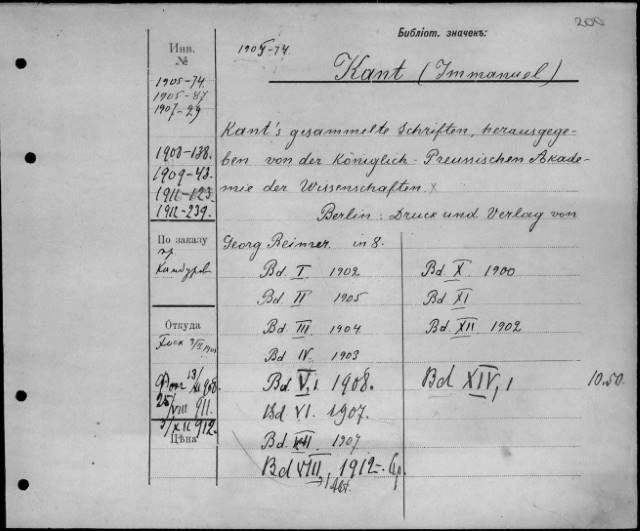 200
Библіот. значекъ:
Инв.
№
1905-74.
Kant (Immanuel)
1905-74.
1905-87
1907-29
1908-138.
1909-43.
1911-123
1912-239.
Kant's gesammelte Schriften, herausgege-
ben von der Königlich-Preussischen Akade-
mie der Wissenschaften.
Berlin: Druck und Verlag von
Georg Reimer. in 8.
По заказу
пр.
Bd. I 1902
Bd. II 1905
Bd. III 1904
Bd. IV 1903
Bd. V,1 1908.
Bd VI. 1907.
Bd. VII 1907
Bd VIII, 1912
Bd. X 1900
Bd XI
Bd. XII 1902
Bd XIV,1 10.50.
Откуда
13/XI 908.
25/VIII 911.
3/XII 912.
Цѣна